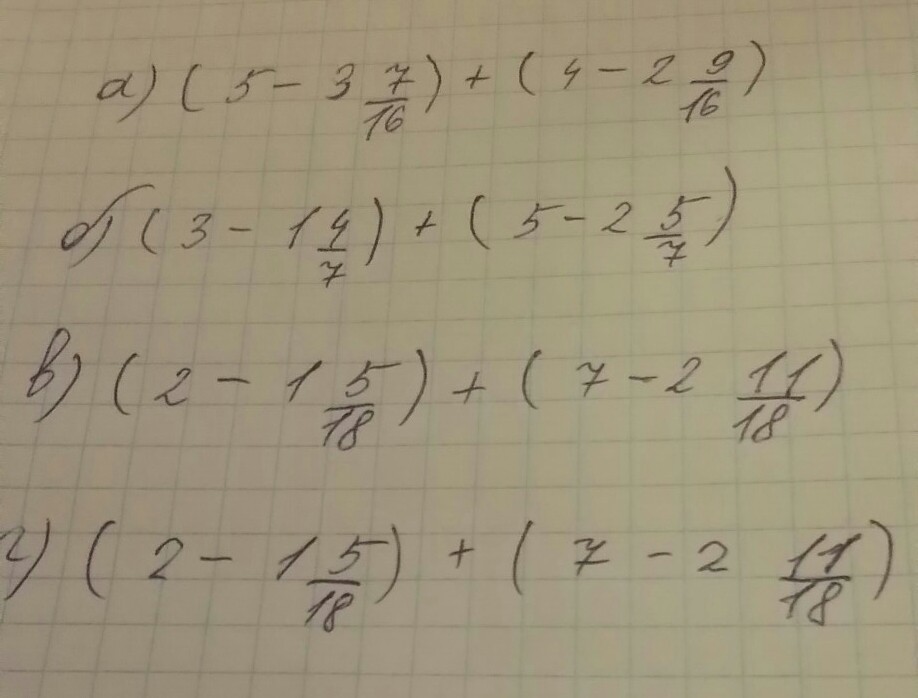 а) ( 5 - 3 7/16 ) + ( 4 - 2 9/16 )
б) ( 3 - 1 4/7 ) + ( 5 - 2 5/7 )
в) ( 2 - 1 5/18 ) + ( 7 - 2 11/18 )
г) ( 2 - 1 5/18 ) + ( 7 - 2 11/18 )